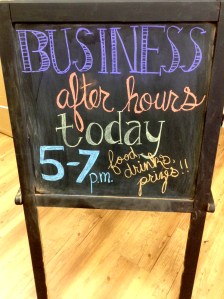 BUSINESS
after hours
today
5-7 p.m.
food,
drinks,
prizes!!